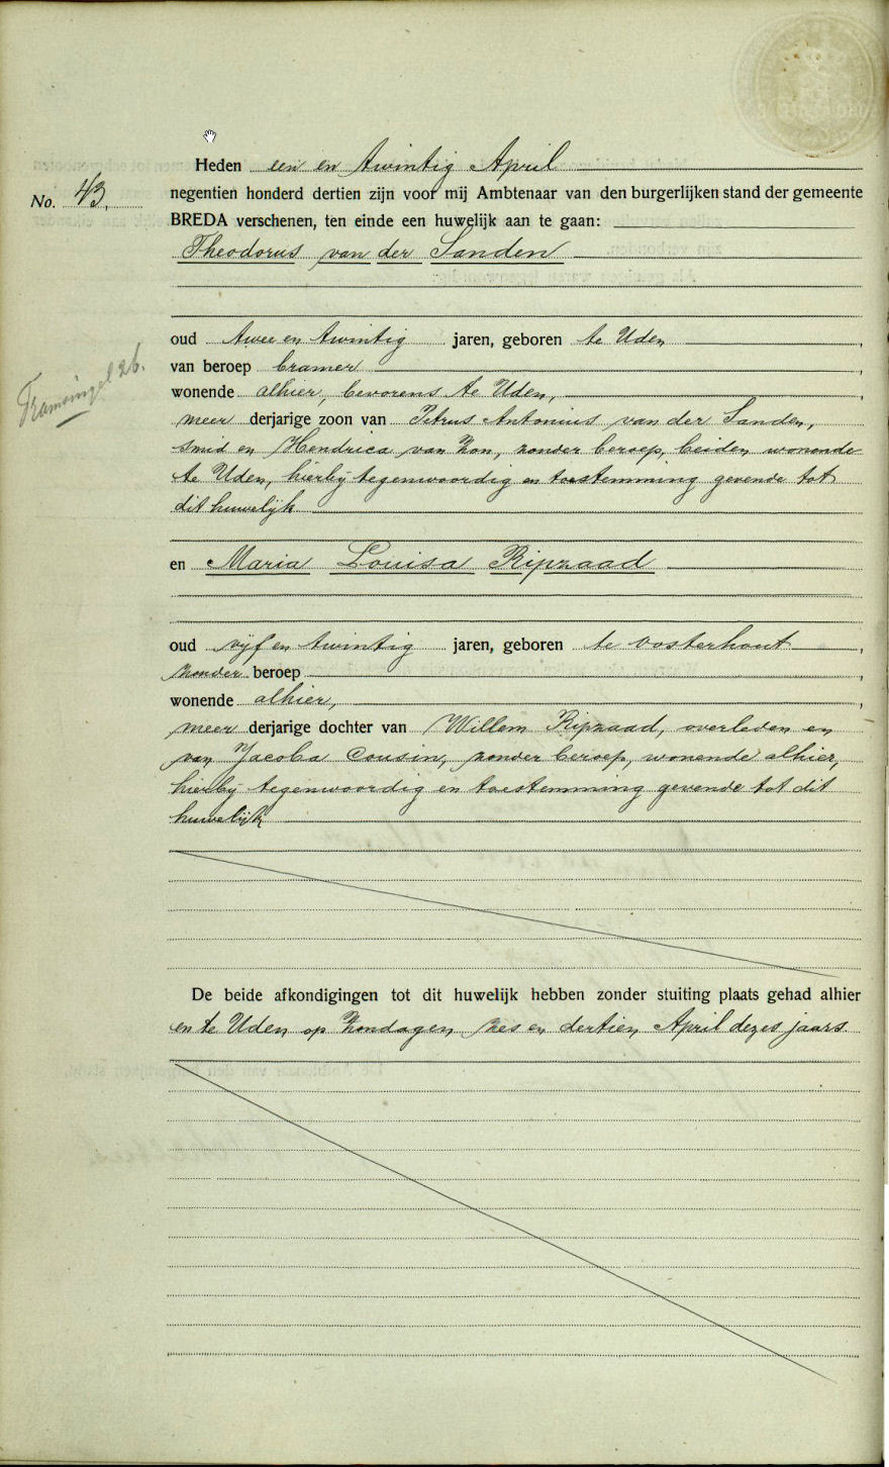 Heden een en twintig April
No. 43. negentien honderd dertien zijn voor mij Ambtenaar van den burgerlijken stand der gemeente
BREDA verschenen, ten einde een huwelijk aan te gaan:
Theodorus van der Sanden
oud twee en twintig jaren, geboren te Uden,
van beroep kramer,
Tramsingel 26.
wonende alhier, bevorens te Uden,
meer derjarige zoon van Petrus Antonius van der Sanden,
smid en Hendrica van Zon, zonder beroep, beiden wonende
te Uden, hierbij tegenwoordig en toestemming gevende tot
dit huwelijk
en Maria Louisa Ripzaad
oud vijf en twintig jaren, geboren te Oosterhout,
zonder beroep,
wonende alhier,
meer derjarige dochter van Willem Ripzaad, overleden en
van Jacoba Cousin, zonder beroep, wonende alhier,
hierbij tegenwoordig en toestemming gevende tot dit
huwelijk
De beide afkondigingen tot dit huwelijk hebben zonder stuiting plaats gehad alhier
en te Uden op Zondagen zes en dertien April dezes jaars.